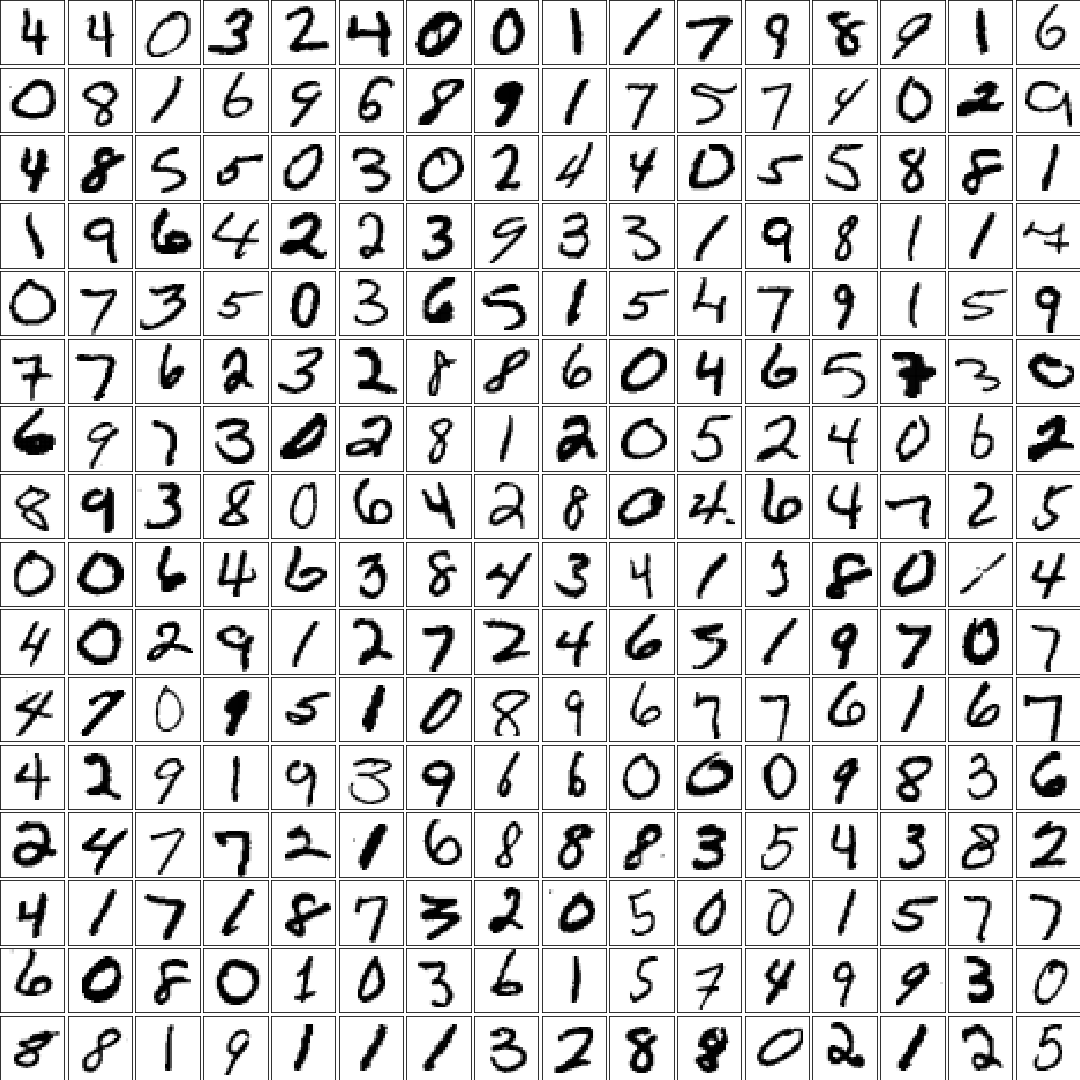 4 4 0 3 2 4 0 0 1 1 7 9 8 9 1 6
0 8 1 6 9 6 8 9 1 7 5 7 4 0 2 9
4 8 5 5 0 3 0 2 4 4 0 5 5 8 8 1
1 9 6 4 2 2 3 9 3 3 1 9 8 1 1 7
0 7 3 5 0 3 6 5 1 5 4 7 9 1 5 9
7 7 6 2 3 2 8 8 6 0 4 6 5 7 3 0
6 9 7 3 0 2 8 1 2 0 5 2 4 0 6 2
8 9 3 8 0 6 4 2 8 0 4 6 4 7 2 5
0 0 6 4 6 3 8 4 3 4 1 3 8 0 1 4
4 0 2 9 1 2 7 2 4 6 5 1 9 7 0 7
4 7 0 9 5 1 0 8 9 6 7 7 6 1 6 7
4 2 9 1 9 3 9 6 6 0 0 0 9 8 3 6
2 4 7 7 2 1 6 8 8 8 3 5 4 3 8 2
4 1 7 1 8 7 3 2 0 5 0 0 1 5 7 7
6 0 8 0 1 0 3 6 1 5 7 4 9 9 3 0
8 8 1 9 1 1 1 3 2 8 8 0 2 1 2 5